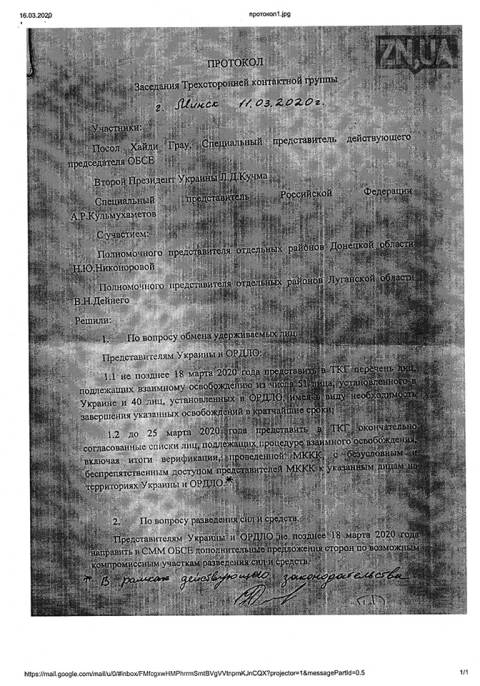 16.03.2020
протокол1.jpg
ZN,UA
ПРОТОКОЛ
Заседания Трехсторонней контактной группы
г. Минск 11.03.2020г.
Участники:
Посол Хайди Грау, Специальный представитель действующего
председателя ОБСЕ
Второй Президент Украины Л.Д.Кучма
Специальный представитель Российской Федерации
А.Р.Кульмухаметов
С участием:
Полномочного представителя отдельных районов Донецкой области
Н.Ю.Никоноровой
Полномочного представителя отдельных районов Луганской области
В.Н.Дейнего
Решили:
1. По вопросу обмена удерживаемых лиц
Представителям Украины и ОРДЛО:
1.1 не позднее 18 марта 2020 года представить в ТКГ перечень лиц,
подлежащих взаимному освобождению из числа 51 лица, установленного в
Украине и 40 лиц, установленных в ОРДЛО, имея в виду необходимость
завершения указанных освобождений в кратчайшие сроки;
1.2 до 25 марта 2020 года представить в ТКГ окончательно
согласованные списки лиц, подлежащих процедуре взаимного освобождения,
включая итоги верификации, проведенной МККК, с безусловным и
беспрепятственным доступом представителей МККК к указанным лицам на
территориях Украины и ОРДЛО.*
2. По вопросу разведения сил и средств
Представителям Украины и ОРДЛО не позднее 18 марта 2020 года
направить в СММ ОБСЕ дополнительные предложения сторон по возможным
компромиссным участкам разведения сил и средств.
* В рамках действующего законодательства
https://mail.google.com/mail/u/0/#inbox/FMfcgxwHMPhrrmSmtBVgVVtnpmKJnCQX?projector=1&messagePartId=0.5
1/1